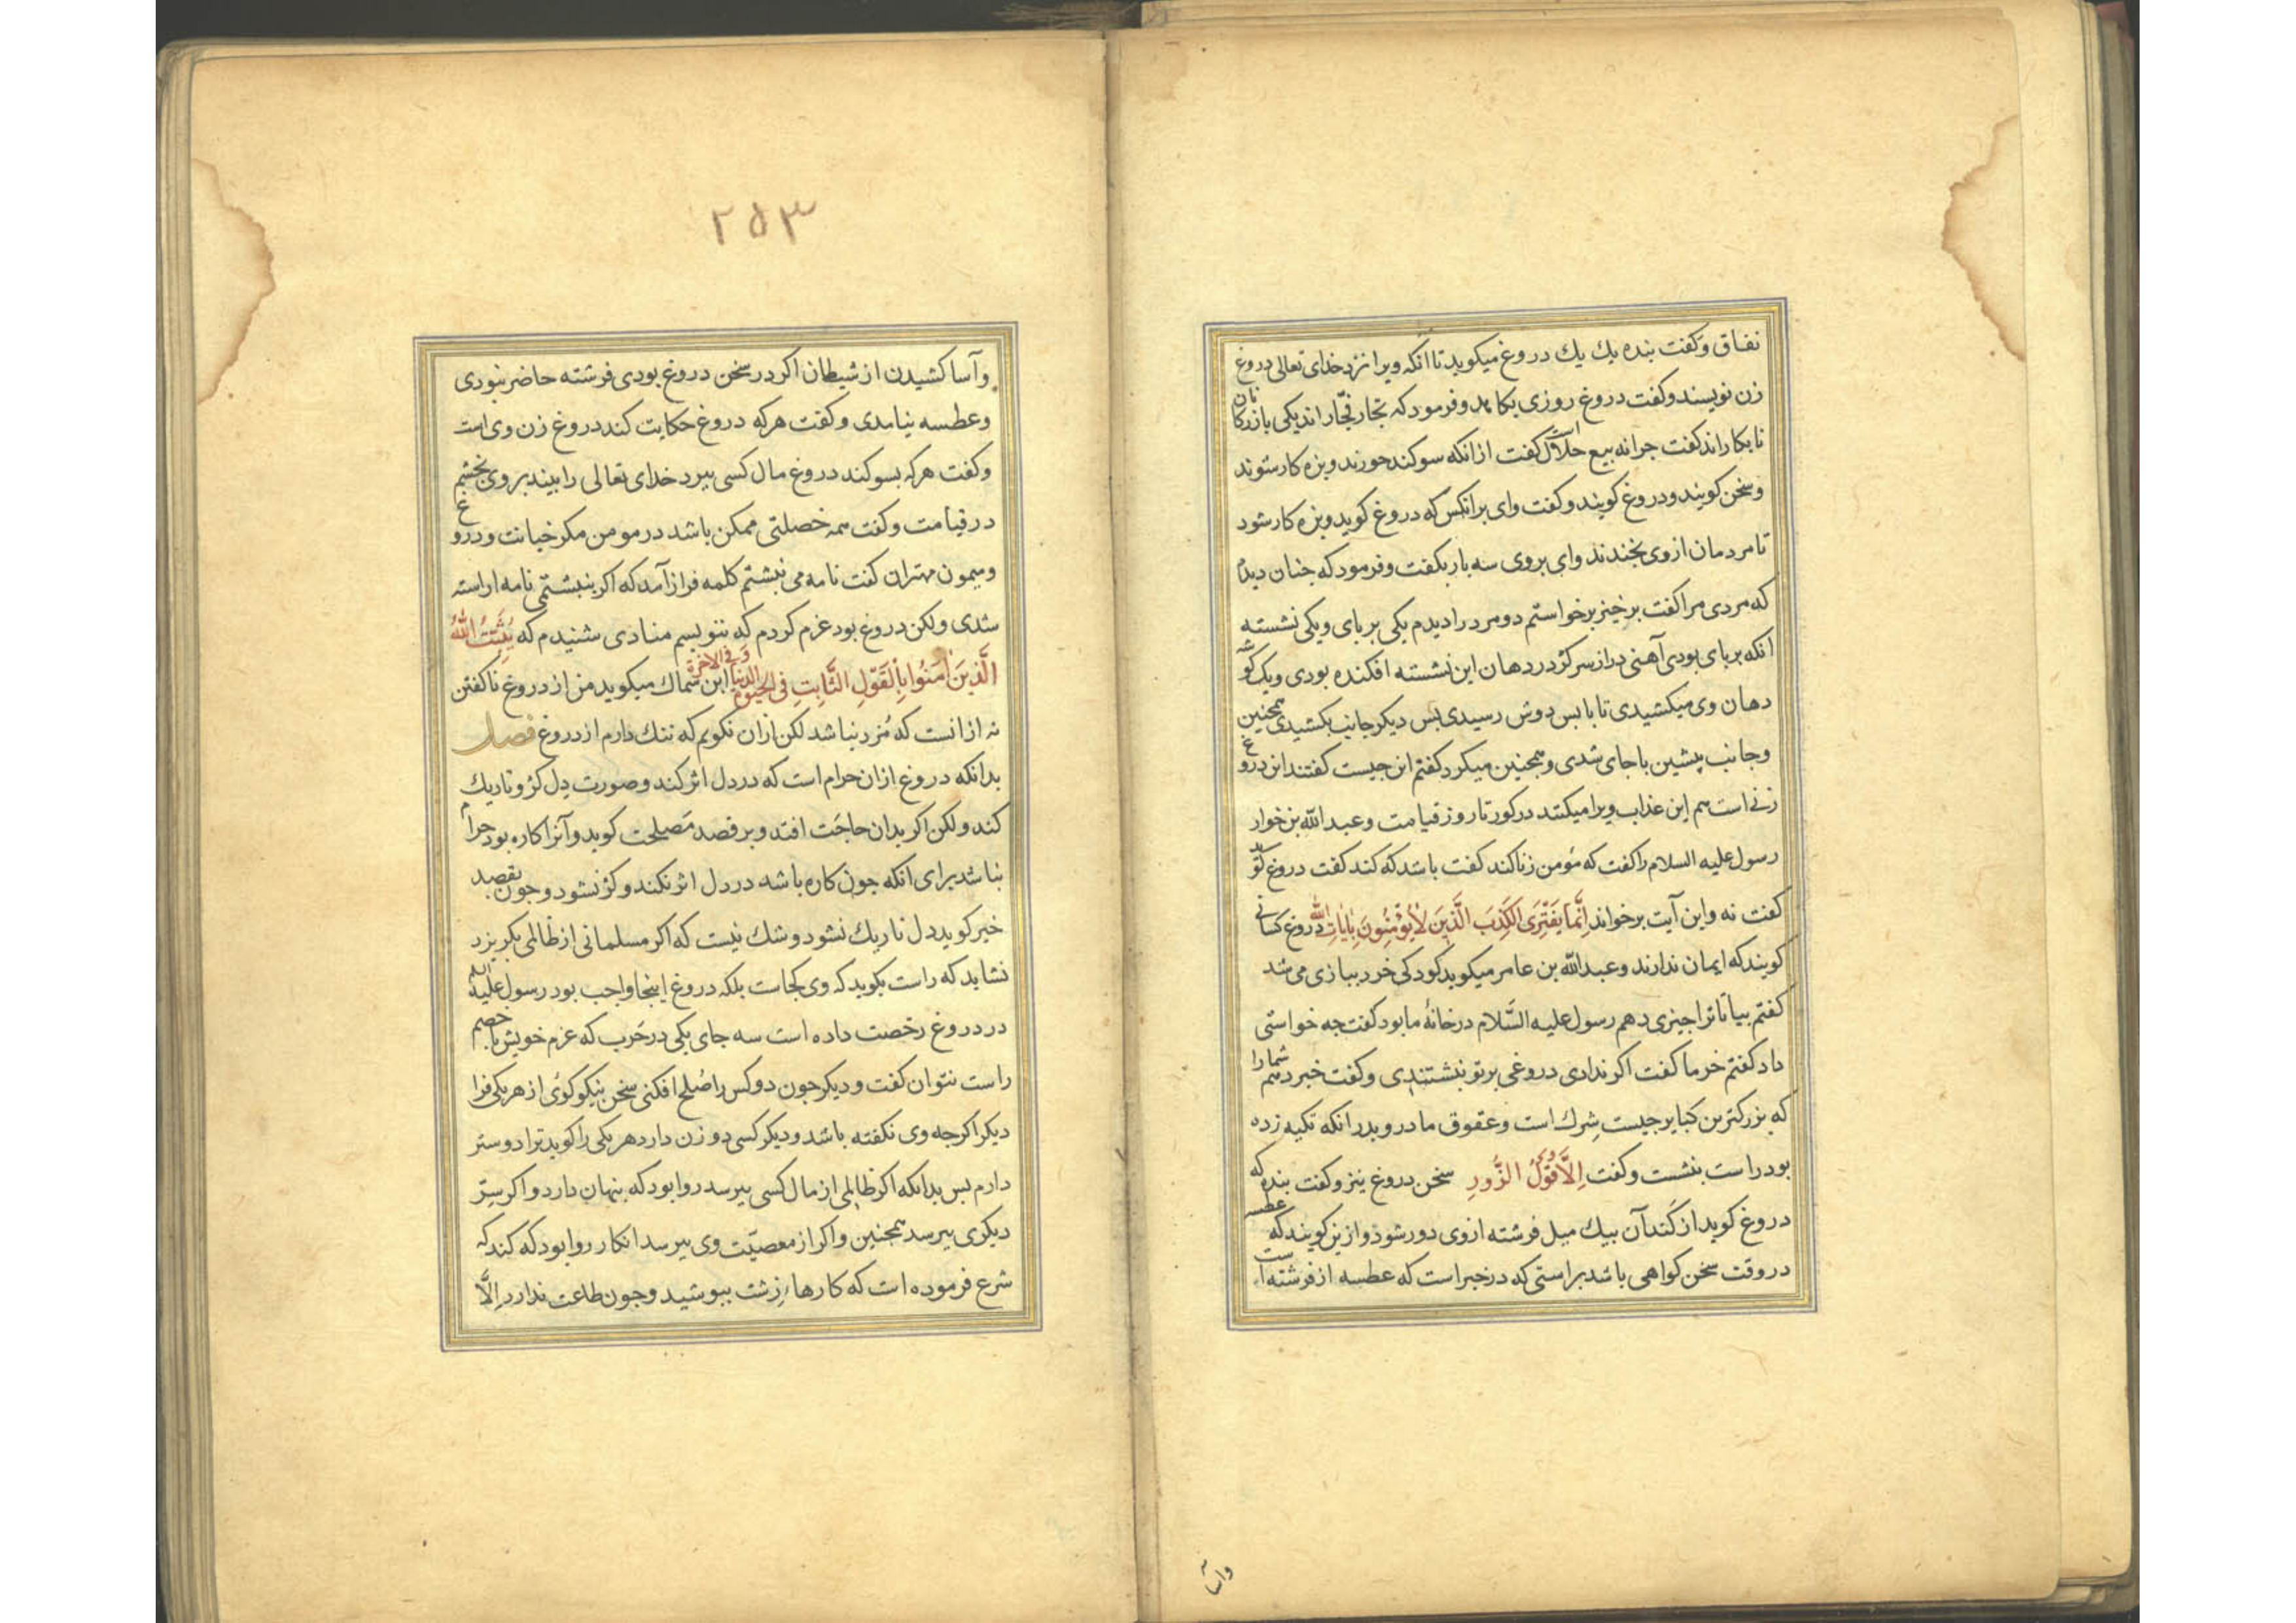 نفاق وکفت بنده یك یك دروغ میکوید تا انکه ویرا نزد خدای تعالی دروغ
زن نویسند وکفت دروغ روزی بکاهد وفرمود که تجار فجّار اند یکی بازرکانان
نابکار اند کفت جرا نه بیع حلالست کفت ازانکه سوکند خورند وبزه کار شوند
وسخن کویند ودروغ کویند وکفت وای برانکس که دروغ کوید وبزه کار شود
تا مردمان ازوی بخندند وای بروی سه بار بکفت وفرمود که جنان دیدم
که مردی مرا کفت برخیز برخواستم دو مرد را دیدم یکی بربای ویکی نشسته
انکه بربای بودی آهنی دراز سرکژ در دهان این نشسته افکنده بودی ویك کوشه
دهان وی میکشیدی تا بابس دوش رسیدی بس دیکر جانب بکشیدی همجنین
وجانب پیشین باجای شدی وهمجنین میکرد کفتم این جیست کفتند این دروغ
زنی است هم این عذاب ویرا میکنند در کور تا روز قیامت وعبدالله بن خوار
رسول علیه السلام را کفت که مؤمن زنا کند کفت باشد که کند کفت دروغ کوید
کفت نه واین آیت برخواند اِنَّمَا یَفْتَرِی الکَذِبَ الَّذِینَ لَا یُؤْمِنُونَ بِاٰیَاتِ اللّٰه دروغ کسانی
کویند که ایمان ندارند وعبدالله بن عامر میکوید کودکی خرد ببازی می شد
کفتم بیا تا ترا جیزی دهم رسول علیه السَّلام در خانهٔ ما بود کفت جه خواستی
داد کفتم خرما کفت اکر ندادی دروغی برتو نبشتندی وکفت خبر دهم شما را
که بزرکترین کبایر جیست شِرك است وعقوق مادر وپدر انکه تکیه زده
بود راست بنشست وکفت اِلَّا وَقَوْلُ الزُّورِ سخن دروغ نیز وکفت بنده که
دروغ کوید از کَند آن بیك میل فرشته ازوی دور شود وازین کویند که عطسه
در وقت سخن کواهی باشد براستی که در خبر است که عطسه از فرشته است
وآسا
۲۵۳
وآسا کشیدن از شیطان اکر در سخن دروغ بودی فرشته حاضر نبودی
وعطسه نیامدی وکفت هرکه دروغ حکایت کند دروغ زن وی است
وکفت هرکه بسوکند دروغ مال کسی ببرد خدای تعالی را بیند بروی بخشم
در قیامت وکفت همه خصلتی ممکن باشد در مومن مکر خیانت ودروغ
ومیمون مهتران کفت نامه می نبشتم کلمه فراز آمد که اکر بنبشتمی نامه اراسته
شدی ولکن دروغ بود عزم کردم که ننویسم منادی شنیدم که یُثَبِّتُ اللّٰهُ
الَّذِینَ اٰمَنُوا بِالْقَوْلِ الثَّابِتِ فِی الْحَیٰوةِ الدُّنیَا وَفِی الاٰخِرَة ابن سماك میکوید من از دروغ ناکفتن
نه ازانست که مُزد نباشد لکن ازان نکویم که ننك دارم از دروغ فصل
بدانکه دروغ ازان حرام است که در دل اثر کند وصورت دل کژ وتاریك
کند ولکن اکر بدان حاجَت افتد وبرقصد مَصلحت کوید وآنرا کاره بود حرام
نباشد برای انکه جون کاره باشد در دل اثر نکند وکژ نشود وجون بقصد
خیر کوید دل تاریك نشود وشك نیست که اکر مسلمانی از ظالمی بکریزد
نشاید که راست بکوید که وی کجاست بلکه دروغ اینجا واجب بود رسول علیه السلم
در دروغ رخصت داده است سه جای یکی در حَرب که عزم خویش با خصم
راست نتوان کفت ودیکر جون دوکس را صُلح افکنی سخن نیکو کوئی از هر یکی فرا
دیکر اکرجه وی نکفته باشد ودیکر کسی دو زن دارد هر یکی را کوید ترا دوستر
دارم بس بدانکه اکر ظالمی از مال کسی ببرسد روا بود که پنهان دارد واکر سِرّ
دیکری ببرسد همجنین واکر از معصیّت وی ببرسد انکار روا بود که کند که
شرع فرموده است که کارهاء زشت ببوشید وجون طاعت ندارد اِلَّا